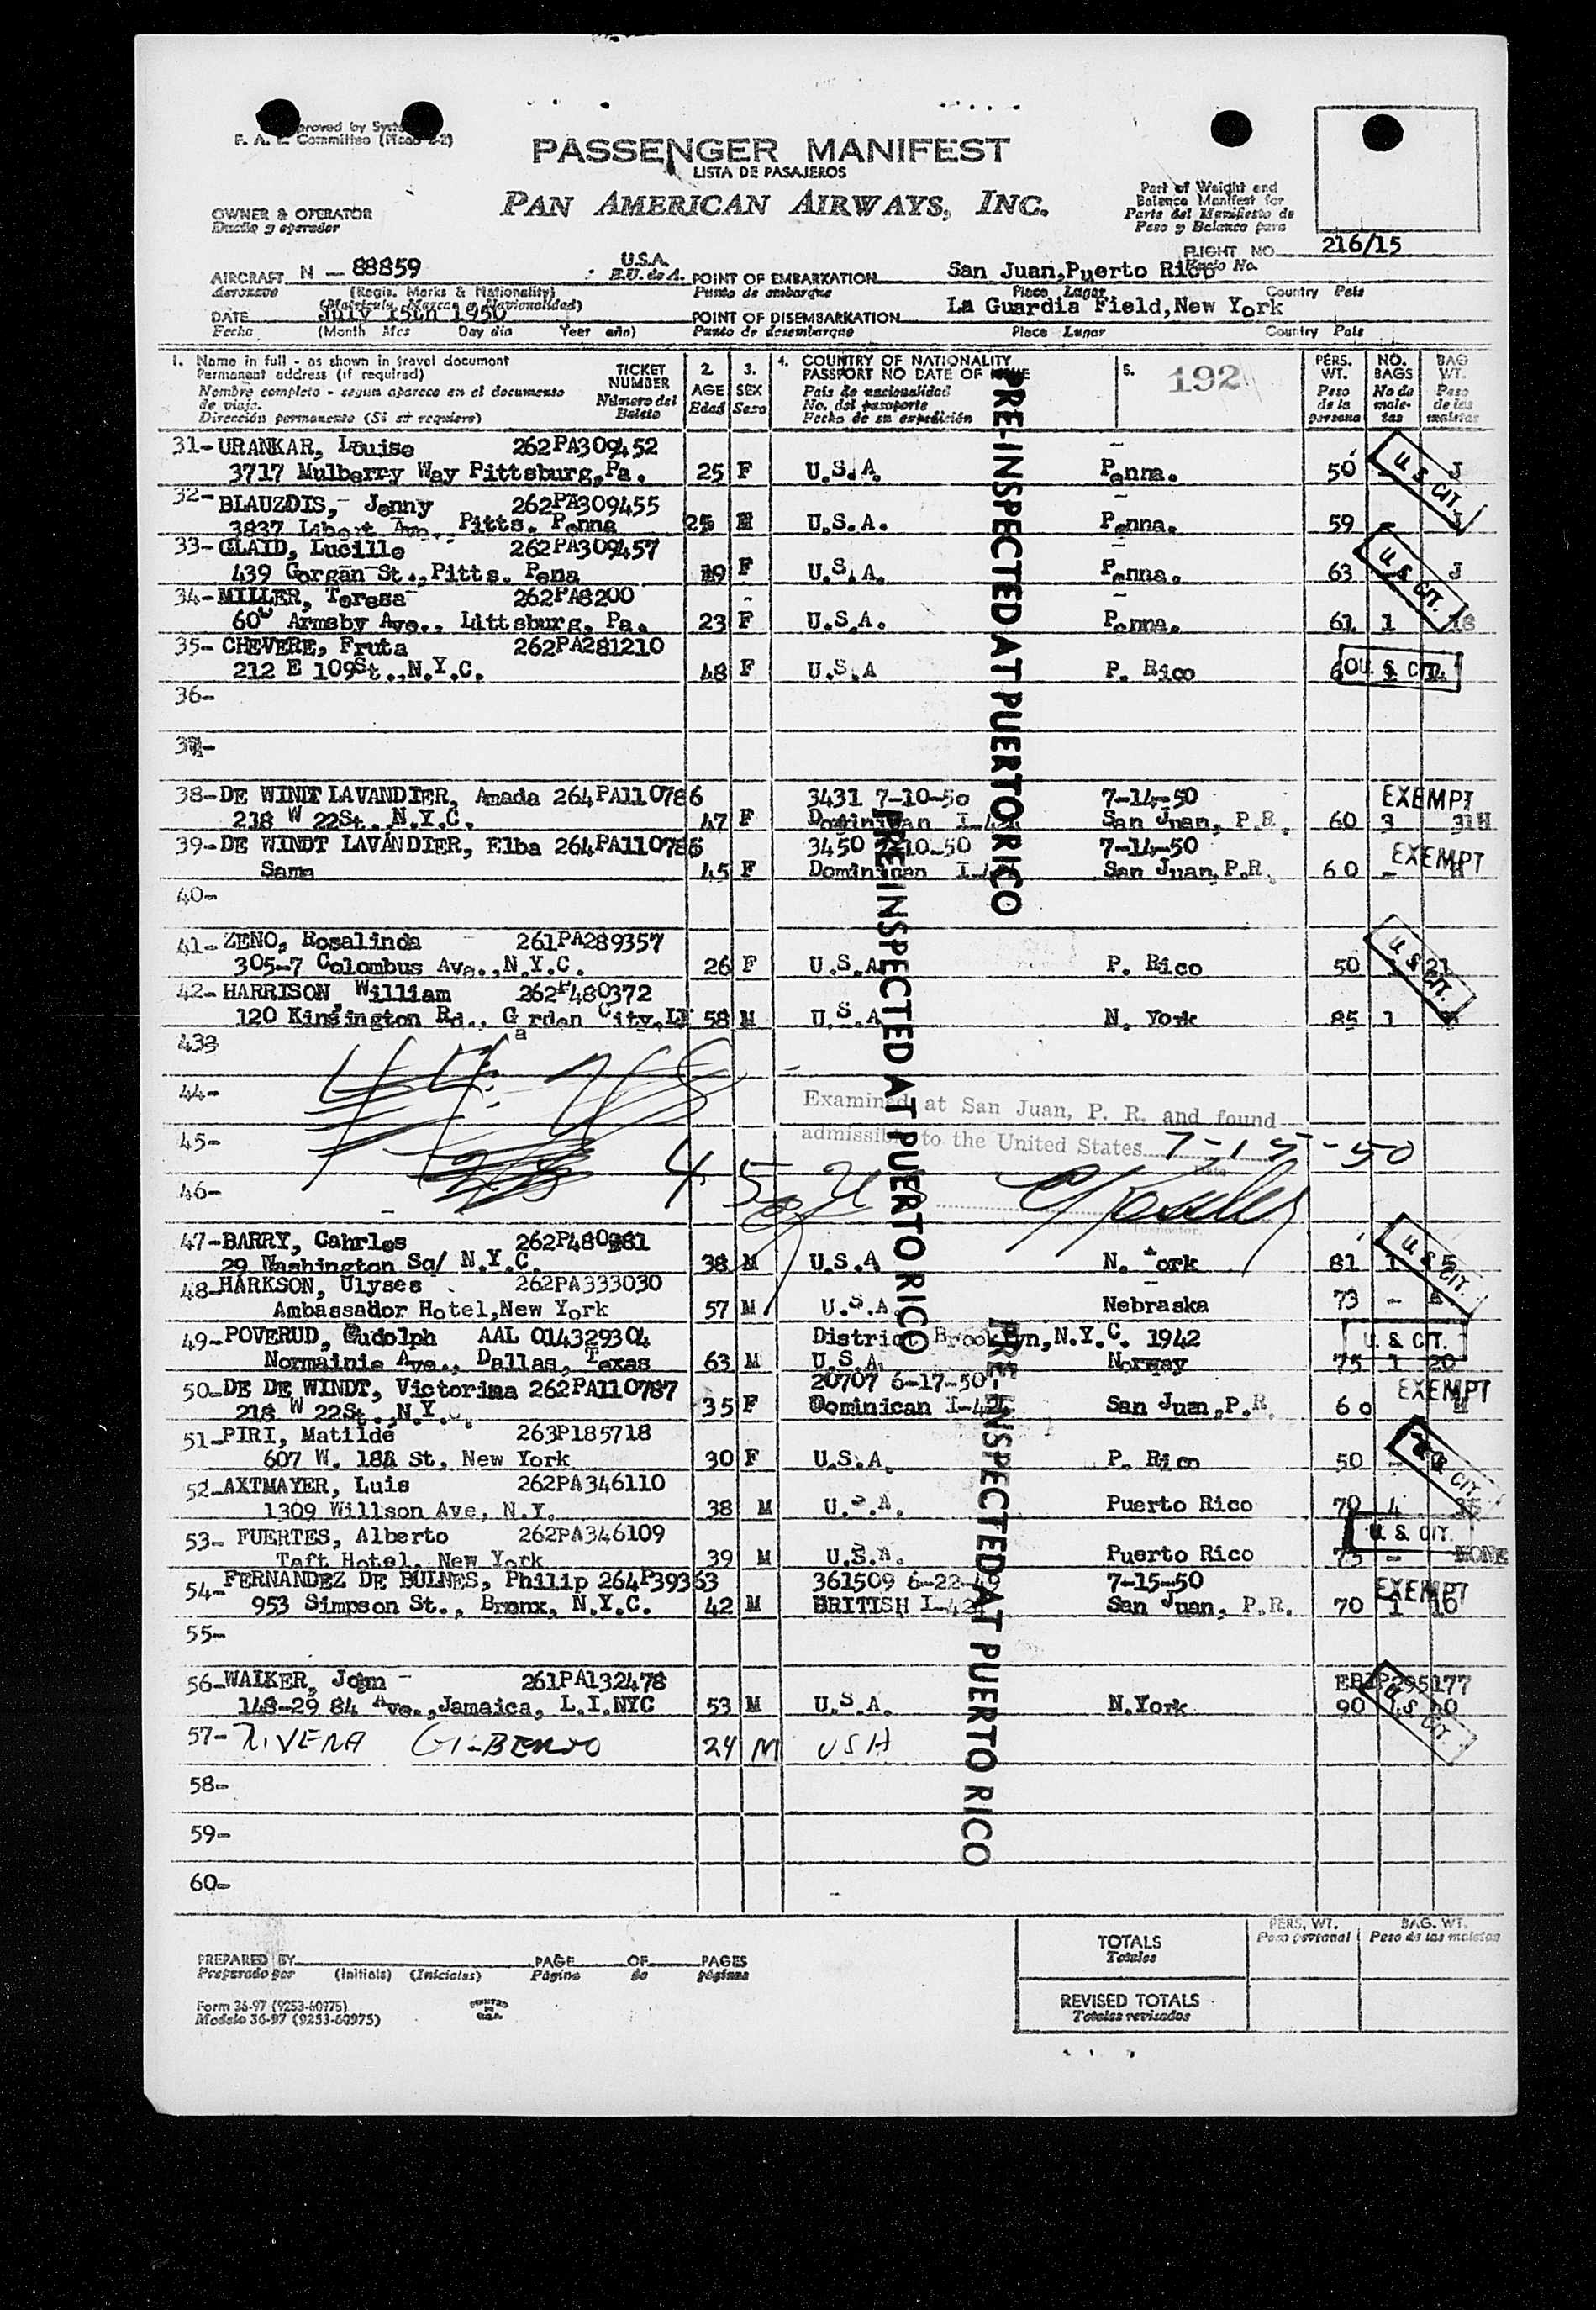 PASSENGER MANIFEST
LISTA DE PASAJEROS
PAN AMERICAN AIRWAYS, INC.
Part of Weight and
Balance Manifest for
Parte del Manifiesto de
Peso y Balance para
OWNER & OPERATOR
Dueño y operador
FLIGHT NO. 216/15
AIRCRAFT N - 88859
U.S.A.
E.U. de A.
POINT OF EMBARKATION San Juan,Puerto Rico
Aeronave (Regis. Marks & Nationality) Punto de embarque Place Lugar Country País
(Matrícula, Marcas y Nacionalidad)
DATE July 15th 1950 POINT OF DISEMBARKATION La Guardia Field,New York
Fecha (Month Mes Day día Year año) Punto de desembarque Place Lugar Country País
1. Name in full - as shown in travel document
Permanent address (if required)
Nombre completo - según aparece en el documento
de viaje.
Dirección permanente (Si se requiere)
TICKET
NUMBER
Número del
Boleto
2.
AGE
Edad
3.
SEX
Sexo
4. COUNTRY OF NATIONALITY
PASSPORT NO DATE OF
País de nacionalidad
No. del pasaporte
Fecha de su expedición
5. 192
PERS.
WT.
Peso
de la
persona
NO.
BAGS
No de
male-
tas
BAG
WT.
Peso
de las
maletas
31- URANKAR, Louise 262PA309452
3717 Mulberry Way Pittsburg,Pa. 25 F U.S.A. Penna. 50 J
32- BLAUZDIS, Jenny 262PA309455
3837 Ave., Pitts. Penna 25 U.S.A. Penna. 59
33- GLAID, Lucille 262PA309457
439 Gorgan St.,Pitts. Pena F U.S.A. Penna. 63 J
34- MILLER, Teresa 262PA8200
Armsby Ave., Littsburg, Pa. 23 F U.S.A. Penna. 61 1 18
35- CHEVERE, Fruta 262PA281210
212 E 109St.,N.Y.C. 48 F U.S.A P. Rico
36-
37-
38-DE WINDT LAVANDIER, Amada 264PA110786 3431 7-10-50 7-14-50 EXEMPT
218 W 22St. N.Y.C. 47 F Dominican I-424 San Juan, P.R. 60 3
39-DE WINDT LAVANDIER, Elba 264PA110785 3450 7-10-50 7-14-50 EXEMPT
Same 45 F Dominican San Juan,P.R. 60 -
40-
41- ZENO, Rosalinda 261PA289357
305-7 Colombus Ave.,N.Y.C. 26 F U.S.A. P. Rico 50 21
42- HARRISON, William 262P480372
120 Kinsington Rd., Garden City,LI 58 M U.S.A N. York 85 1
433
44-
45-
46-
Examined at San Juan, P. R. and found
admissible to the United States 7-15-50
Date
Inspector.
47-BARRY, Cahrles
29 Washington Sq/ N.Y.C. 38 M U.S.A N. York 81
48-HARKSON, Ulyses 262PA333030
Ambassador Hotel,New York 57 M U.S.A. Nebraska 73 -
49-POVERUD, Gudolph AAL 014329304 District Brooklyn,N.Y.C. 1942
Normainie Ave., Dallas, Texas 63 M U.S.A. Norway 75 1 20
50-DE DE WINDT, Victorina 262PA110787 20707 6-17-50 EXEMPT
218 W 22St.,N.Y. 35 F Dominican I-424 San Juan,P.R. 60
51-PIRI, Matilde 263P185718
607 W. 188 St, New York 30 F U.S.A. P. Rico 50
52-AXTMAYER, Luis 262PA346110
1309 Willson Ave, N.Y. 38 M U.S.A. Puerto Rico 70 4
53- FUERTES, Alberto 262PA346109
Taft Hotel, New York 39 M U.S.A. Puerto Rico 75 - NONE
54-FERNANDEZ DE BULNES, Philip 264P39363 361509 6-22-49 7-15-50 EXEMPT
953 Simpson St., Bronx, N.Y.C. 42 M BRITISH I-424 San Juan, P.R. 70 1 10
55-
56-WALKER, John 261PA132478
148-29 84 Ave.,Jamaica, L.I.NYC 53 M U.S.A. N.York 90
57- RIVERA GILBERTO 24 M USA
58-
59-
60-
PRE-INSPECTED AT PUERTO RICO
PRE-INSPECTED AT PUERTO RICO
PRE-INSPECTED AT PUERTO RICO
U. S. CIT.
U. S. CIT.
U. S. CIT.
U. S. CIT.
U. S. CIT.
U. S. CIT.
U. S. CIT.
U. S. CIT.
PERS. WT.
Peso personal
BAG. WT.
Peso de las maletas
TOTALS
Totales
REVISED TOTALS
Totales revisados
PREPARED BY PAGE OF PAGES
Preparado por (Initials) (Iniciales) Página de páginas
Form 36-97 (9253-60975)
Modelo 36-97 (9253-60975)
PRINTED
IN
U.S.A.